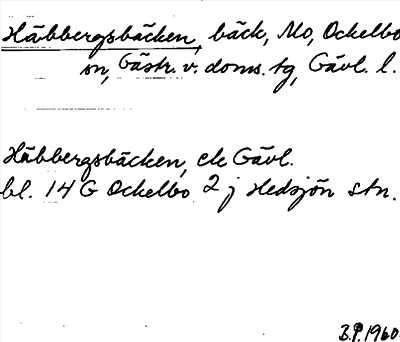 Häbbergsbäcken, bäck, Mo, Ockelbo
sn, Gästr. v. doms. tg, Gävl. l.
Häbbergsbäcken, ek Gävl.
bl. 14 G Ockelbo 2 j Hedsjön stn.
B.P. 1960